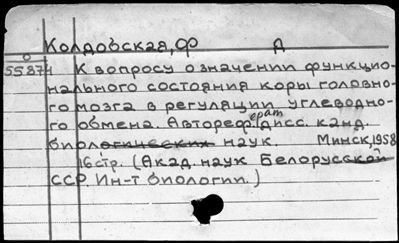 Колдовская, Ф Д
О
55874 К вопросу о значении функцио-
нального состояния коры головно-
го мозга в регуляции углеводно-
го обмена. Автореферат дисс. канд.
биологических наук. Минск, 1958
16 стр. (Акад. наук Белорусской
ССР. Ин-т биологии.)